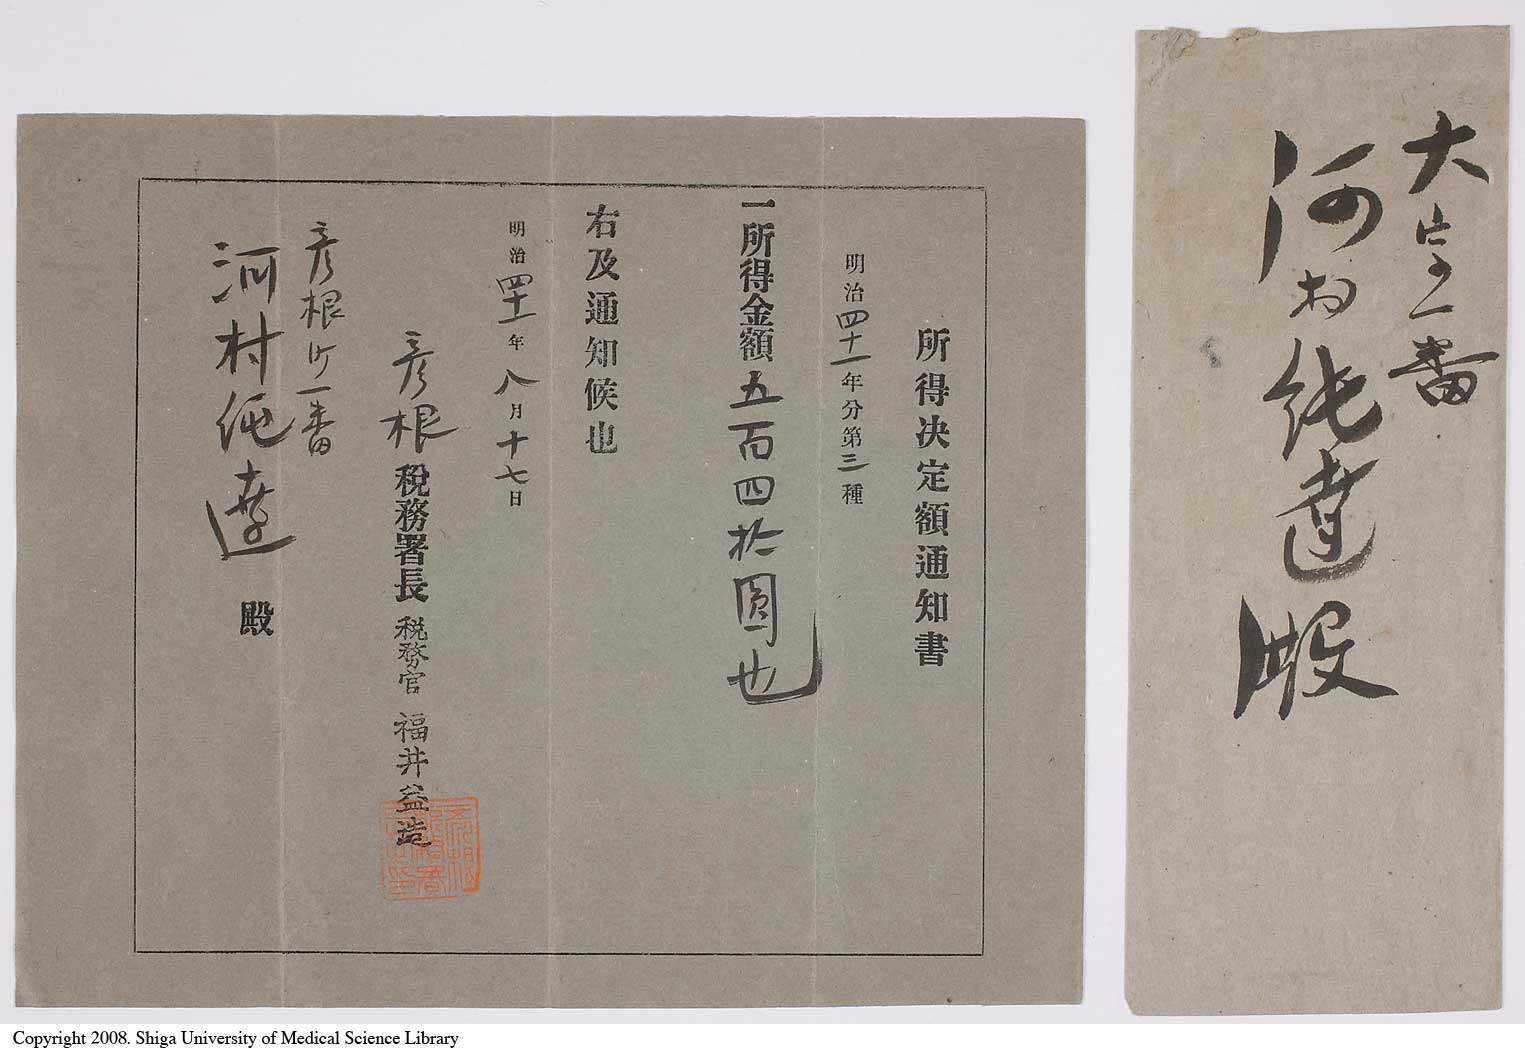 所得決定額通知書
明治四十一年分第三種
一所得金額五百四拾圓也
右及通知候也
明治四十一年八月十七日
彦根税務署長税務官 福井益造
彦根町一番
河村純達殿
大字一番
河村純達殿
Copyright 2008. Shiga University of Medical Science Library